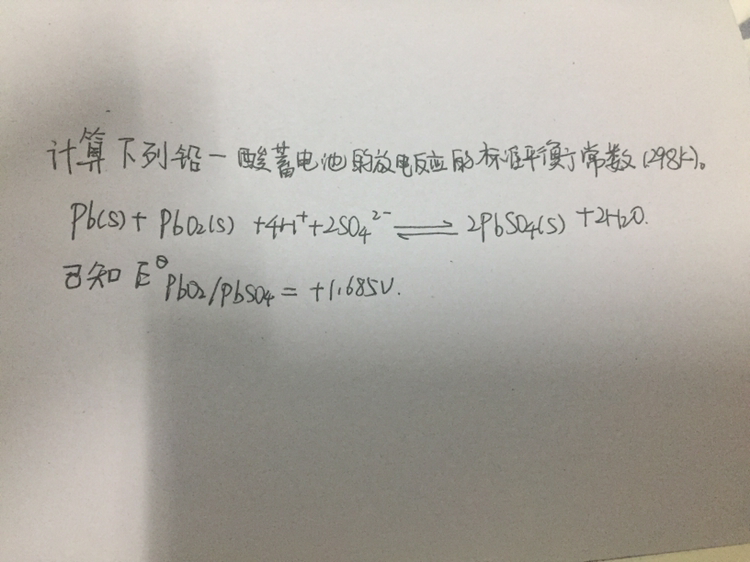 计算下列铅一酸蓄电池的放电反应的标准平衡常数(298K)。
Pb(s) + PbO₂(s) + 4H⁺ + 2SO₄²⁻ ⇌ 2PbSO₄(s) + 2H₂O.
已知 E^θ PbO₂/PbSO₄ = +1.685V.